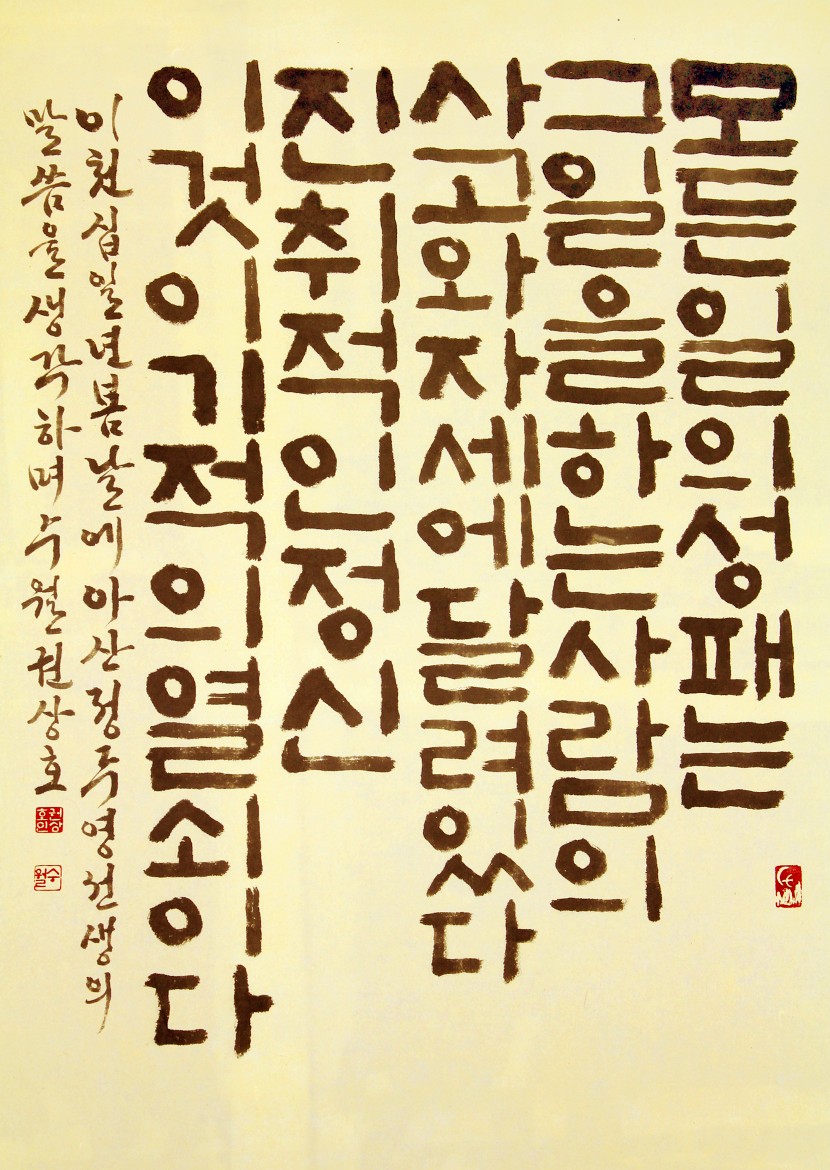 모든일의성패는
그일을하는사람의
사고와자세에달려있다
진취적인정신
이것이기적의열쇠이다
이천십일년봄날에아산정주영선생의
말씀을생각하며수월권상호
권상호인
수월